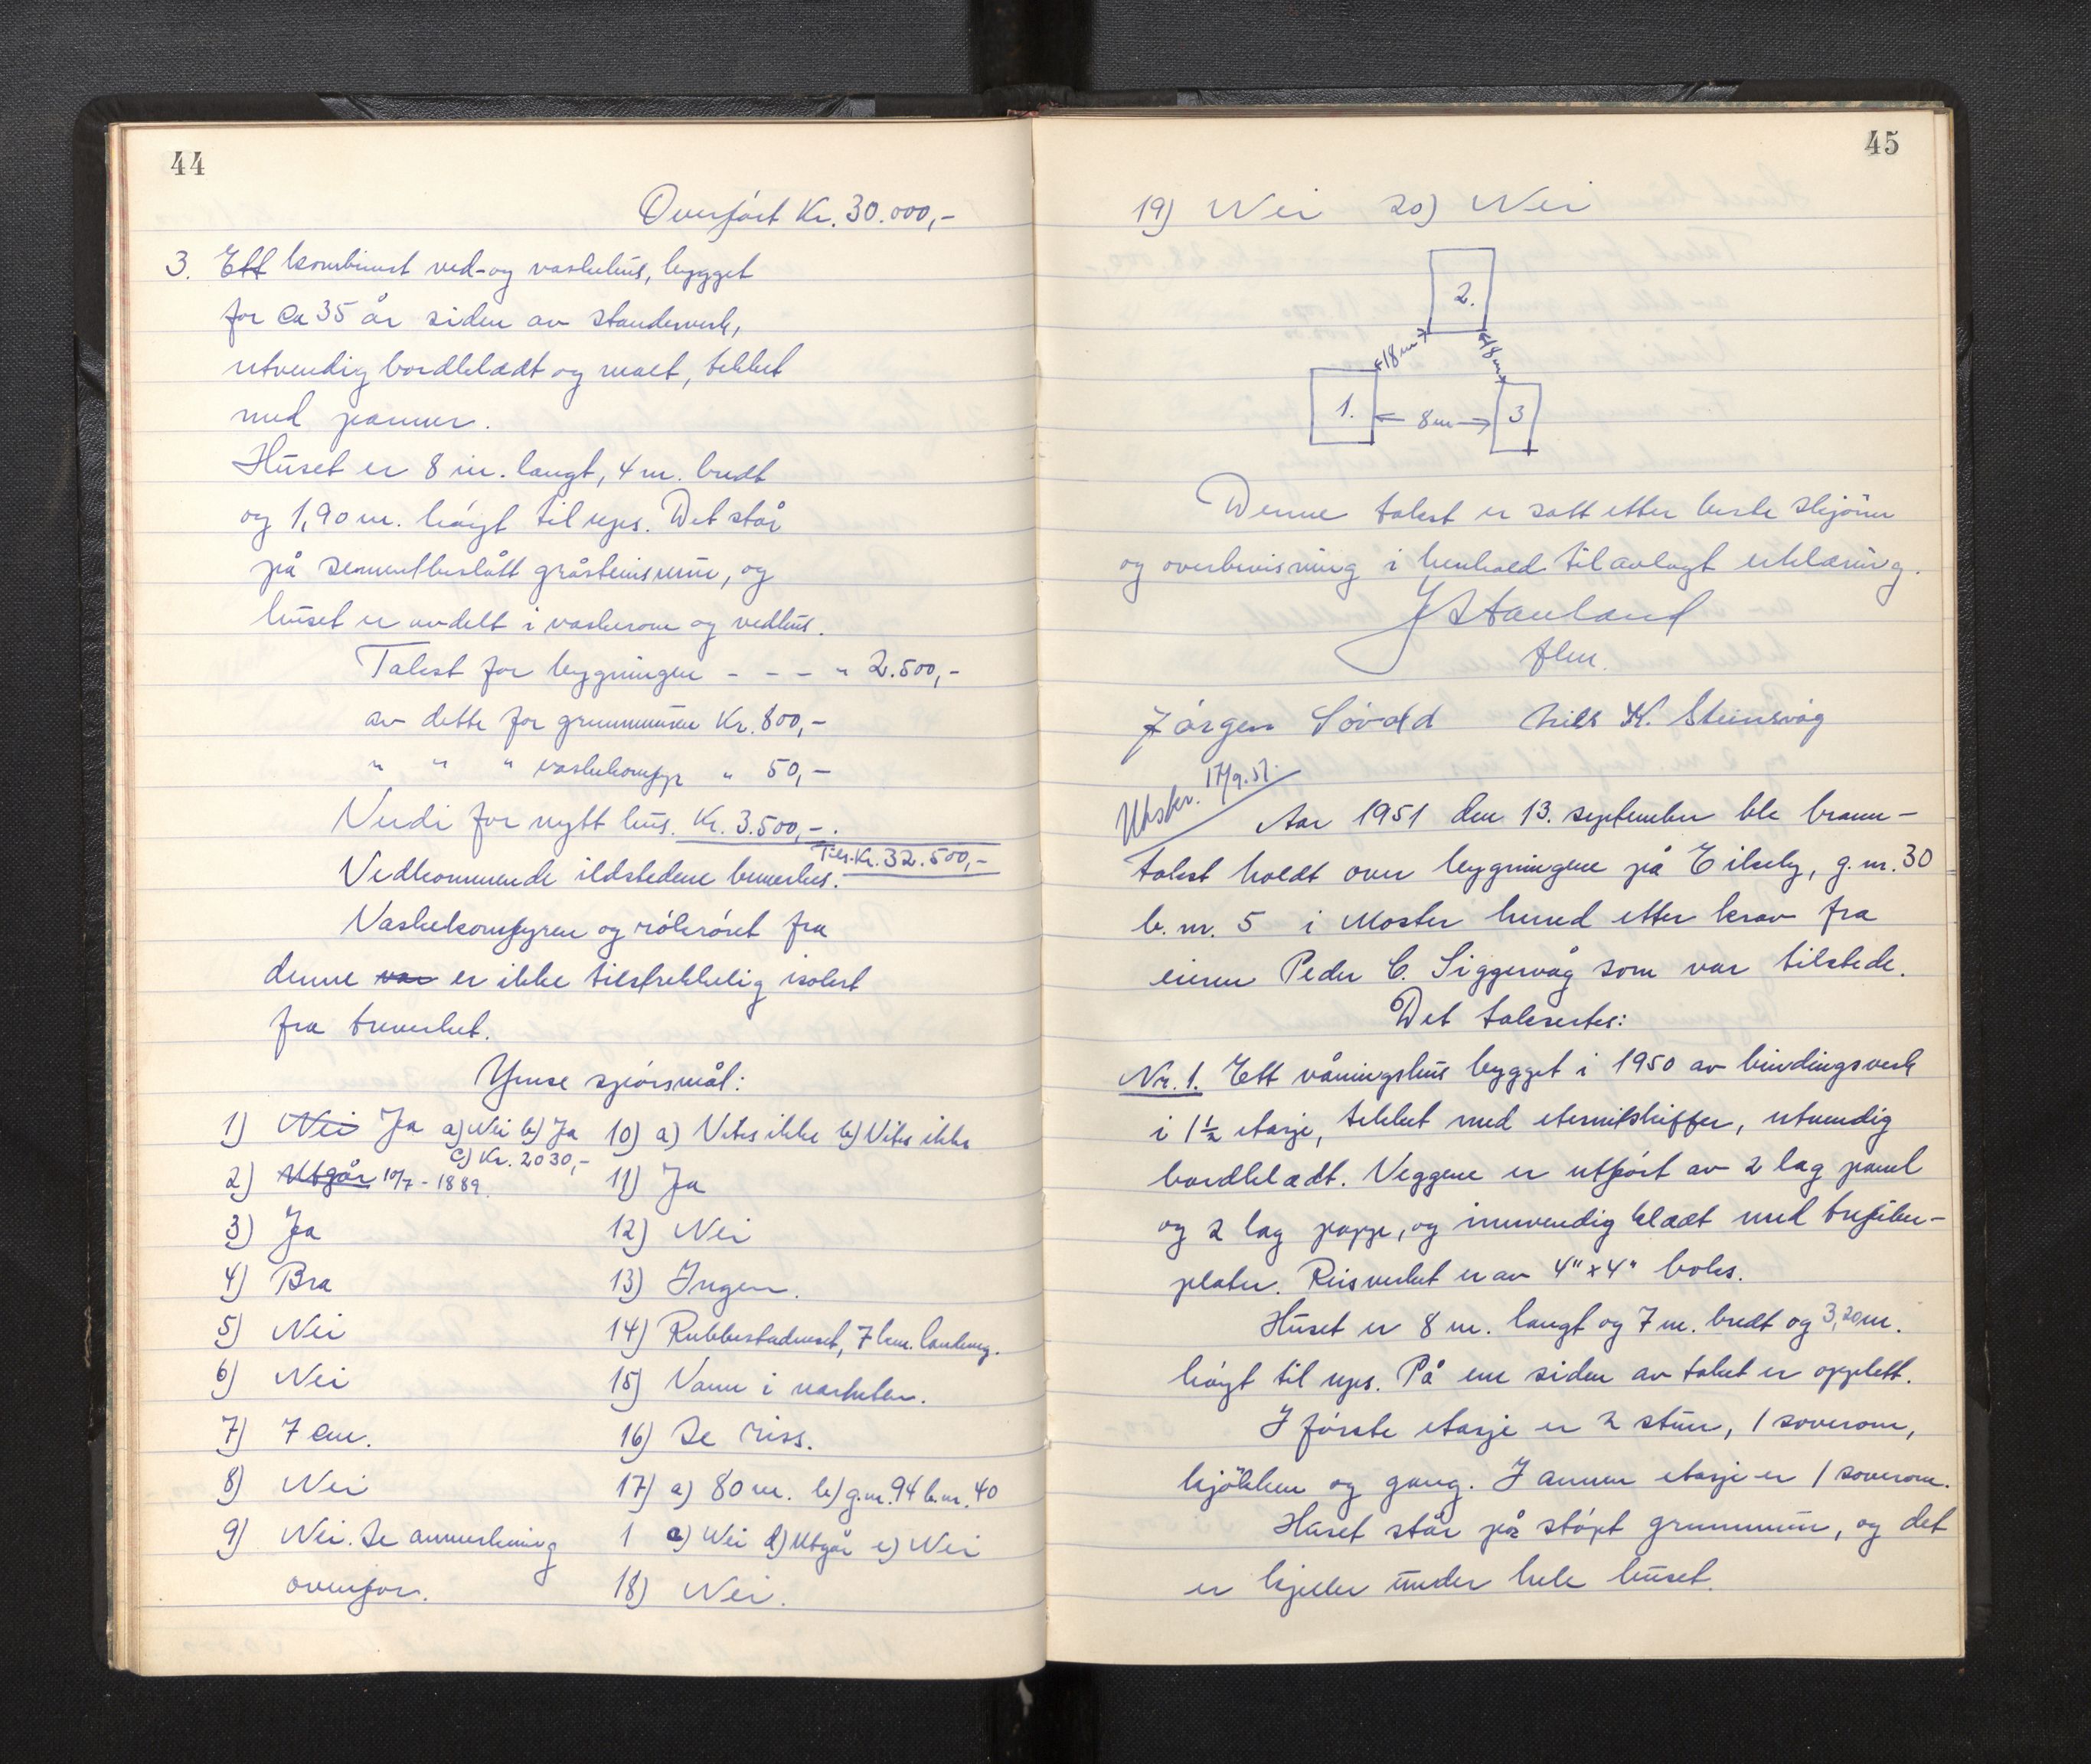 44
Overført Kr. 30.000,-
3. Ett kombinert ved- og vaskehus, bygget
for ca 35 år siden av standerverk,
utvendig bordklædt og malt, tekket
med panner.
Huset er 8 m. langt, 4 m. bredt
og 1,90 m. høgt til ups. Det står
på sementbeslått gråsteinsmur, og
huset er avdelt i vaskerom og vedhus.
Takst for bygningen - - - " 2.500,-
av dette for grunnmuren Kr. 800,-
" " " vaskekomfyr " 50,-
Verdi for nytt hus. Kr. 3.500,-.
Tils. Kr. 32.500,-
Vedkommende ildstedene bemerkes.
Vaskekomfyren og rökröret fra
denne var er ikke tilstrekkelig isolert
fra treverket.
Ymse spörsmål:
1) Nei Ja a) Nei b) Ja
c) Kr. 2030,-
2) Utgår 10/7 - 1889.
3) Ja
4) Bra
5) Nei
6) Nei
7) 7 cm.
8) Nei
9) Nei. Se anmerkning
ovenfor.
10) a) Vites ikke b) Vites ikke
11) Ja
12) Nei
13) Ingen.
14) Rubbestadneset, 7 km. landeveg.
15) Vann i nærheten.
16) Se riss.
17) a) 80 m. b) g.nr. 94 b.nr. 40
1 c) Nei d) Utgår e) Nei
18) Nei.
45
19) Nei 20) Nei
2.
18 m
18 m
1.
8 m
3
Denne takst er satt etter beste skjönn
og overbevisning i henhold til avlagt erklæring.
J Stauland
flm.
Jörgen Lövold Nils K. Steinsvåg
Utskr. 17/9.51.
Aar 1951 den 13. september ble brann-
takst holdt over bygningene på Eikeby, g.nr. 30
b.nr. 5 i Moster herred etter krav fra
eieren Peder C. Siggervåg som var tilstede.
Det takseres:
Nr. 1. Ett våningshus bygget i 1950 av bindingsverk
i 1½ etasje, tekket med eternitskiffer, utvendig
bordklædt. Veggene er utfört av 2 lag panel
og 2 lag papp, og innvendig klædt med trefiber-
plater. Reisverket er av 4" x 4" boks.
Huset er 8 m. langt og 7 m. bredt og 3,20 m.
högt til ups. På ene siden av taket er opplett.
I förste etasje er 2 stuer, 1 soverom,
kjökken og gang. I annen etasje er 1 soverom.
Huset står på støpt grunnmur, og det
er kjeller under hele huset.